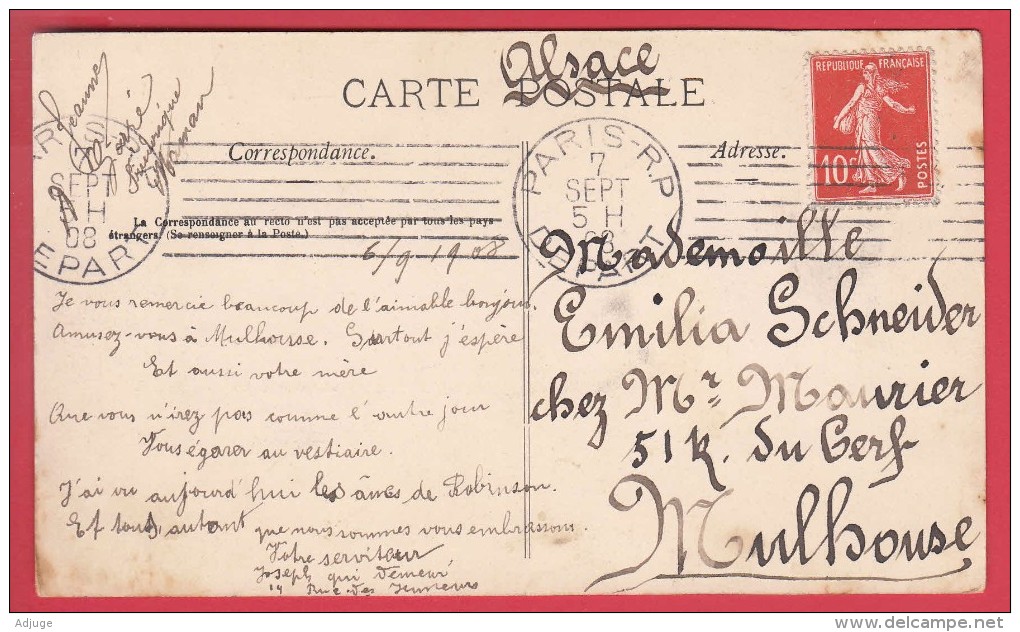 Alsace
CARTE POSTALE
REPUBLIQUE FRANÇAISE
10c
POSTES
Jeanne
José
Maman
Correspondance.
Adresse.
PARIS-R.P
7
SEPT
5 H
08
DEPART
SEPT
H
08
EPART
La Correspondance au recto n'est pas acceptée par tous les pays
étrangers (Se renseigner à la Poste.)
6/9 1908
Je vous remercie beaucoup de l'aimable bonjour.
Amusez-vous à Mulhouse. Surtout j'espère
Et aussi votre mère
Que vous n'irez pas comme l'autre jour
Vous égarer au vestiaire.
J'ai vu aujourd'hui les ânes de Robinson.
Et tous, autant que nous sommes vous embrassons.
Votre serviteur
Joseph qui demeure
14 Rue des Jeuneurs
Mademoille
Emilia Schneider
chez Mr. Maurier
51 R. du Cerf
Mulhouse
Adjuge
delcampe.net